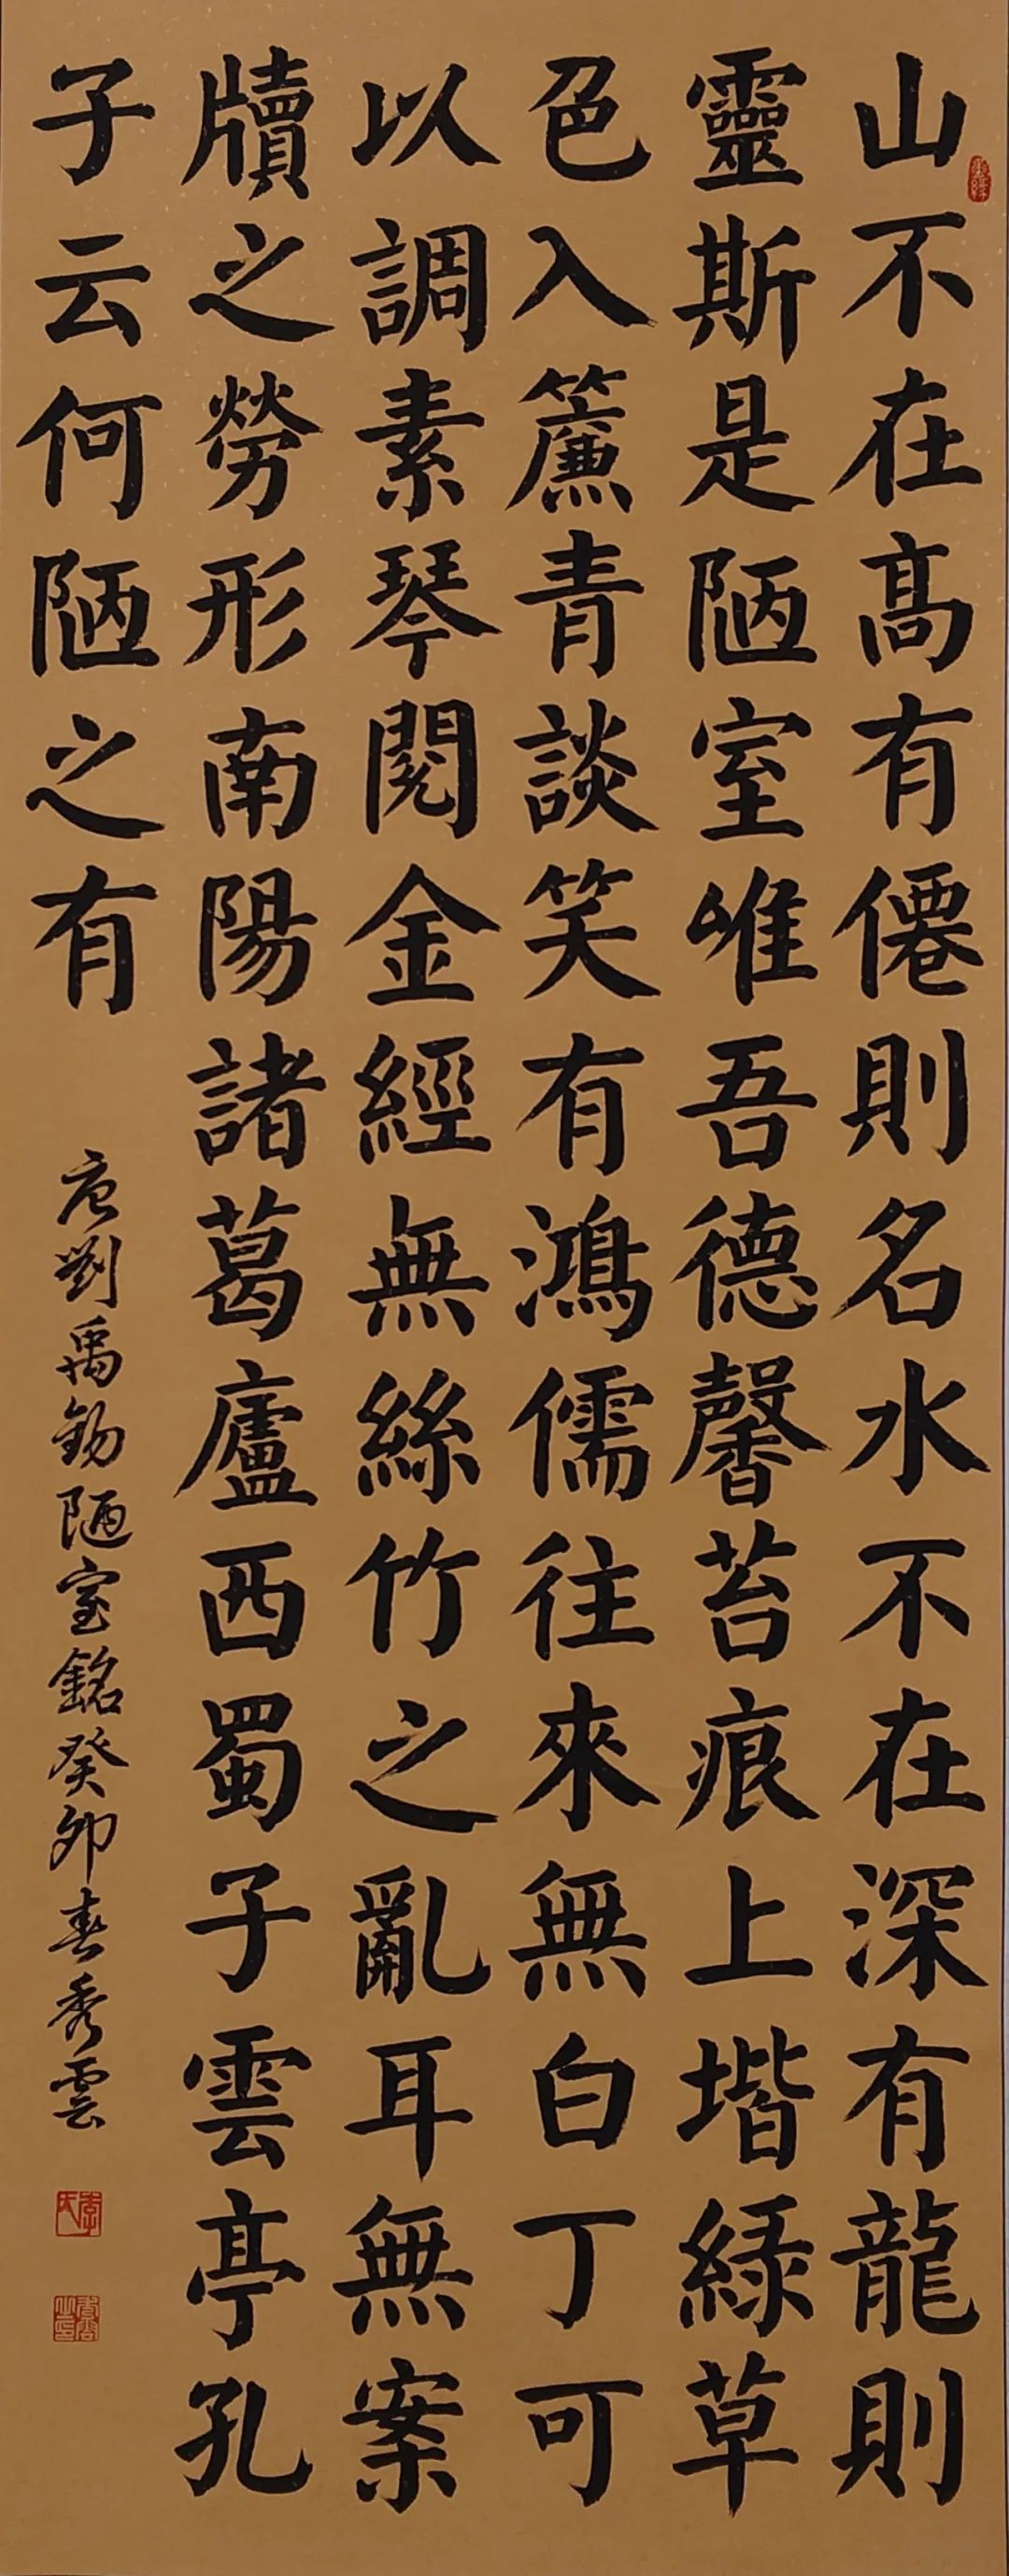 山不在高有僊則名水不在深有龍則
靈斯是陋室唯吾德馨苔痕上堦緑草
色入簾青談笑有鴻儒往來無白丁可
以調素琴閱金經無絲竹之亂耳無案
牘之勞形南陽諸葛廬西蜀子雲亭孔
子云何陋之有
唐劉禹錫陋室銘癸卯春秀雲